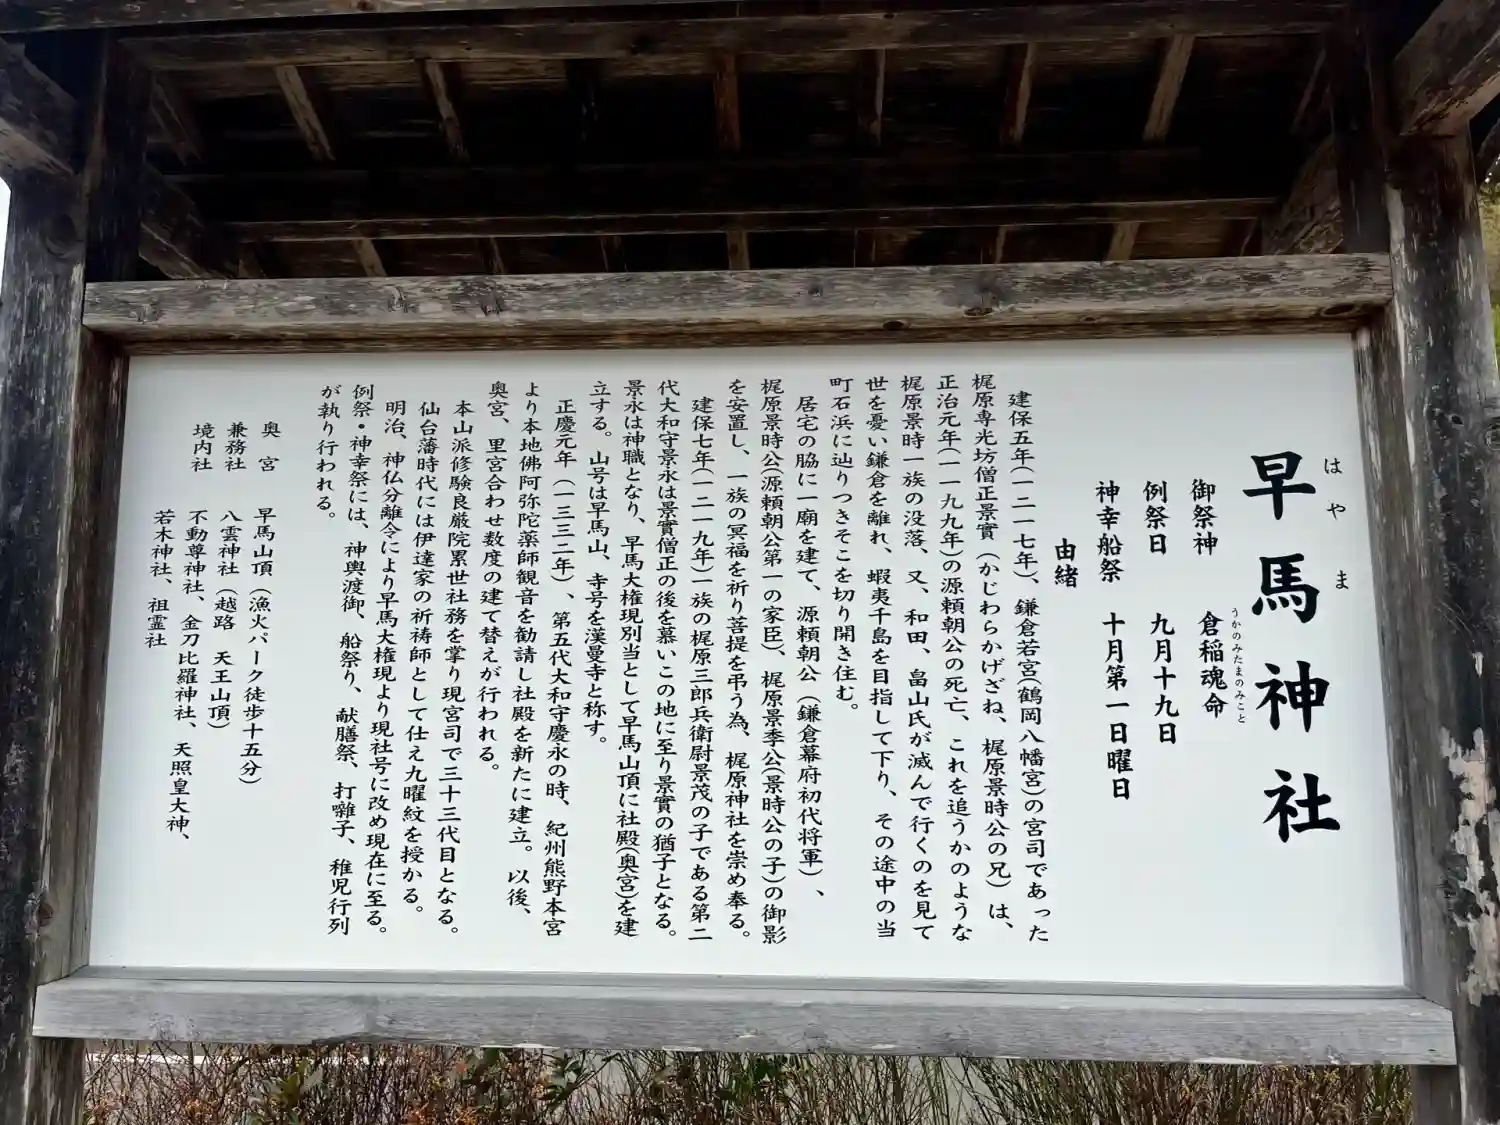 早馬神社
はやま
御祭神 倉稲魂命
うかのみたまのみこと
例祭日 九月十九日
神幸船祭 十月第一日曜日
由緒
建保五年(一二一七年)、鎌倉若宮(鶴岡八幡宮)の宮司であった
梶原専光坊僧正景實(かじわらかげざね、梶原景時公の兄)は、
正治元年(一一九九年)の源頼朝公の死亡、これを追うかのような
梶原景時一族の没落、又、和田、畠山氏が滅んで行くのを見て
世を憂い鎌倉を離れ、蝦夷千島を目指して下り、その途中の当
町石浜に辿りつきそこを切り開き住む。
居宅の脇に一廟を建て、源頼朝公(鎌倉幕府初代将軍)、
梶原景時公(源頼朝公第一の家臣)、梶原景季公(景時公の子)の御影
を安置し、一族の冥福を祈り菩提を弔う為、梶原神社を崇め奉る。
建保七年(一二一九年)一族の梶原三郎兵衛尉景茂の子である第二
代大和守景永は景實僧正の後を慕いこの地に至り景實の猶子となる。
景永は神職となり、早馬大権現別当として早馬山頂に社殿(奥宮)を建
立する。山号は早馬山、寺号を漢曼寺と称す。
正慶元年(一三三二年)、第五代大和守慶永の時、紀州熊野本宮
より本地佛阿弥陀薬師観音を勧請し社殿を新たに建立。以後、
奥宮、里宮合わせ数度の建て替えが行われる。
本山派修験良厳院累世社務を掌り現宮司で三十三代目となる。
仙台藩時代には伊達家の祈祷師として仕え九曜紋を授かる。
明治、神仏分離令により早馬大権現より現社号に改め現在に至る。
例祭・神幸祭には、神輿渡御、船祭り、献膳祭、打囃子、稚児行列
が執り行われる。
奥宮 早馬山頂(漁火パーク徒歩十五分)
兼務社 八雲神社(越路 天王山頂)
境内社 不動尊神社、金刀比羅神社、天照皇大神、
若木神社、祖霊社